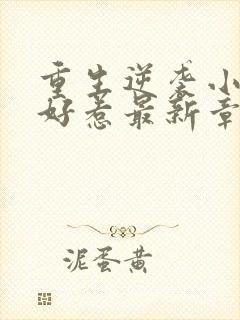 重生逆袭小
好惹最新章
泥蛋黄